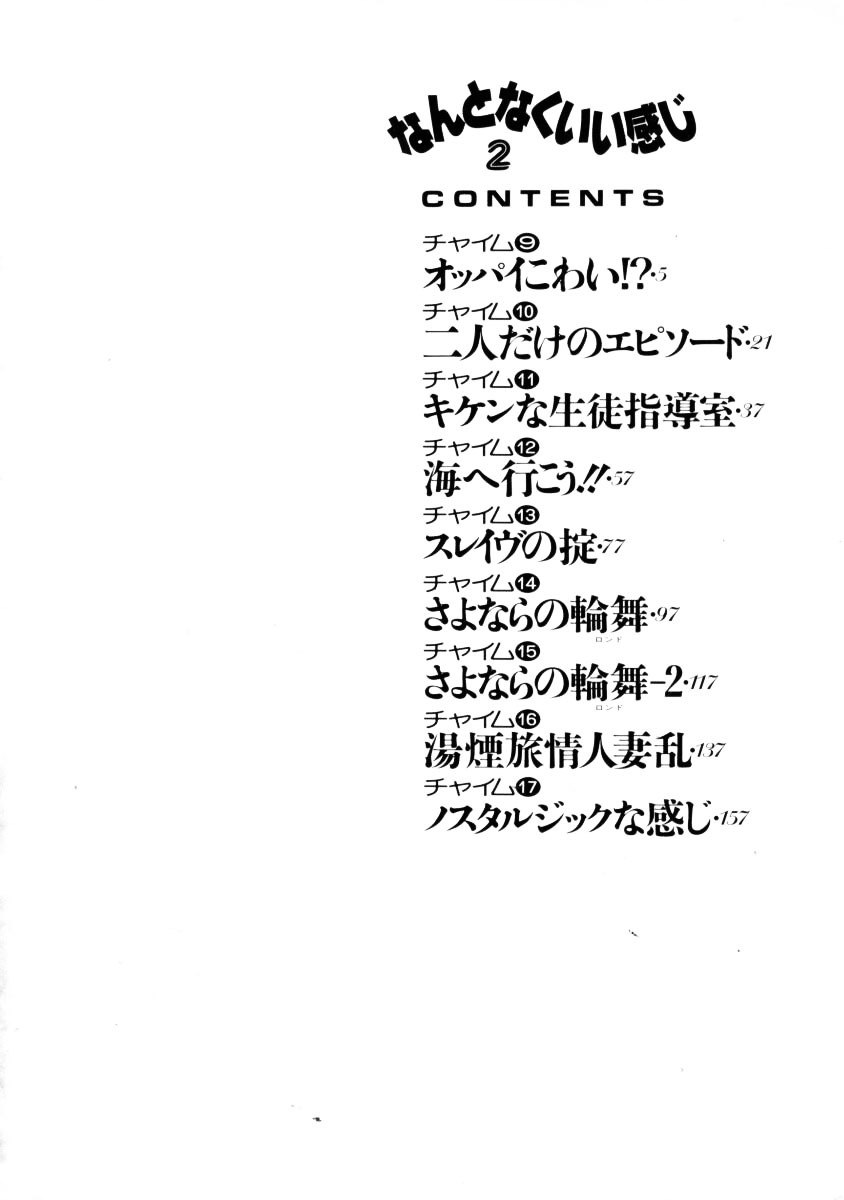 なんとなくいい感じ
2
CONTENTS
チャイム❾
オッパイこわい!?・5
チャイム❿
二人だけのエピソード・21
チャイム⓫
キケンな生徒指導室・37
チャイム⓬
海へ行こう!!・57
チャイム⓭
スレイヴの掟・77
チャイム⓮
さよならの輪舞・97
ロンド
チャイム⓯
さよならの輪舞−2・117
ロンド
チャイム⓰
湯煙旅情人妻乱・137
チャイム⓱
ノスタルジックな感じ・157